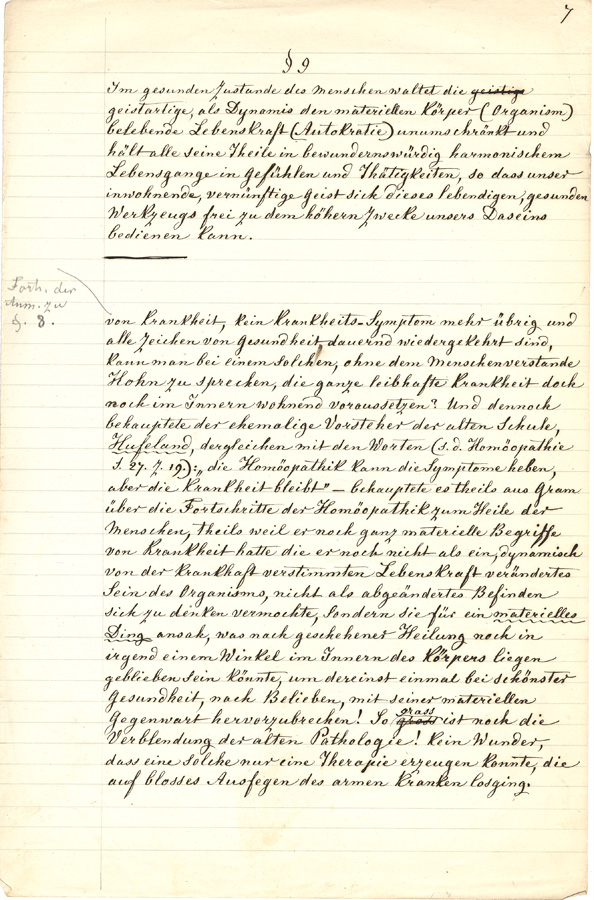 7
§ 9
Im gesunden Zustande des Menschen waltet die geistige
geistartige, als Dynamis den materiellen Körper (Organism)
belebende Lebenskraft (Autokratie) unumschränkt und
hält alle seine Theile in bewundernswürdig harmonischem
Lebensgange in Gefühlen und Thätigkeiten, so dass unser
inwohnende, vernünftige Geist sich dieses lebendigen, gesunden
Werkzeugs frei zu dem höhern Zwecke unsers Daseins
bedienen kann.
Forts. der
Anm. zu
§. 8.
von Krankheit, kein Krankheits-Symptom mehr übrig und
alle Zeichen von Gesundheit dauernd wiedergekehrt sind,
kann man bei einem solchen, ohne dem Menschenverstande
Hohn zu sprechen, die ganze leibhafte Krankheit doch
noch im Innern wohnend voraussetzen? Und dennoch
bekauptete der ehemalige Vorsteher der alten Schule,
Hufeland, dergleichen mit den Worten (s. d. Homöopathie
S. 27. Z. 19.): „die Homöopathik kann die Symptome heben,
aber die Krankheit bleibt" — behauptete es theils aus Gram
über die Fortschritte der Homöopathik zum Heile der
Menschen, theils weil er noch ganz materielle Begriffe
von Krankheit hatte die er noch nicht als ein, dynamisch
von der krankhaft verstimmten Lebenskraft verändertes
Sein des Organisms, nicht als abgeändertes Befinden
sich zu denken vermochte, sondern sie für ein materielles
Ding ansah, was nach geschehener Heilung noch in
irgend einem Winkel im Innern des Körpers liegen
geblieben sein könnte, um dereinst einmal bei schönster
Gesundheit, nach Belieben, mit seiner materiellen
Gegenwart hervorzubrechen! So gross crass ist noch die
Verblendung der alten Pathologie! Kein Wunder,
dass eine solche nur eine Therapie erzeugen konnte, die
auf blosses Ausfegen des armen Kranken losging.